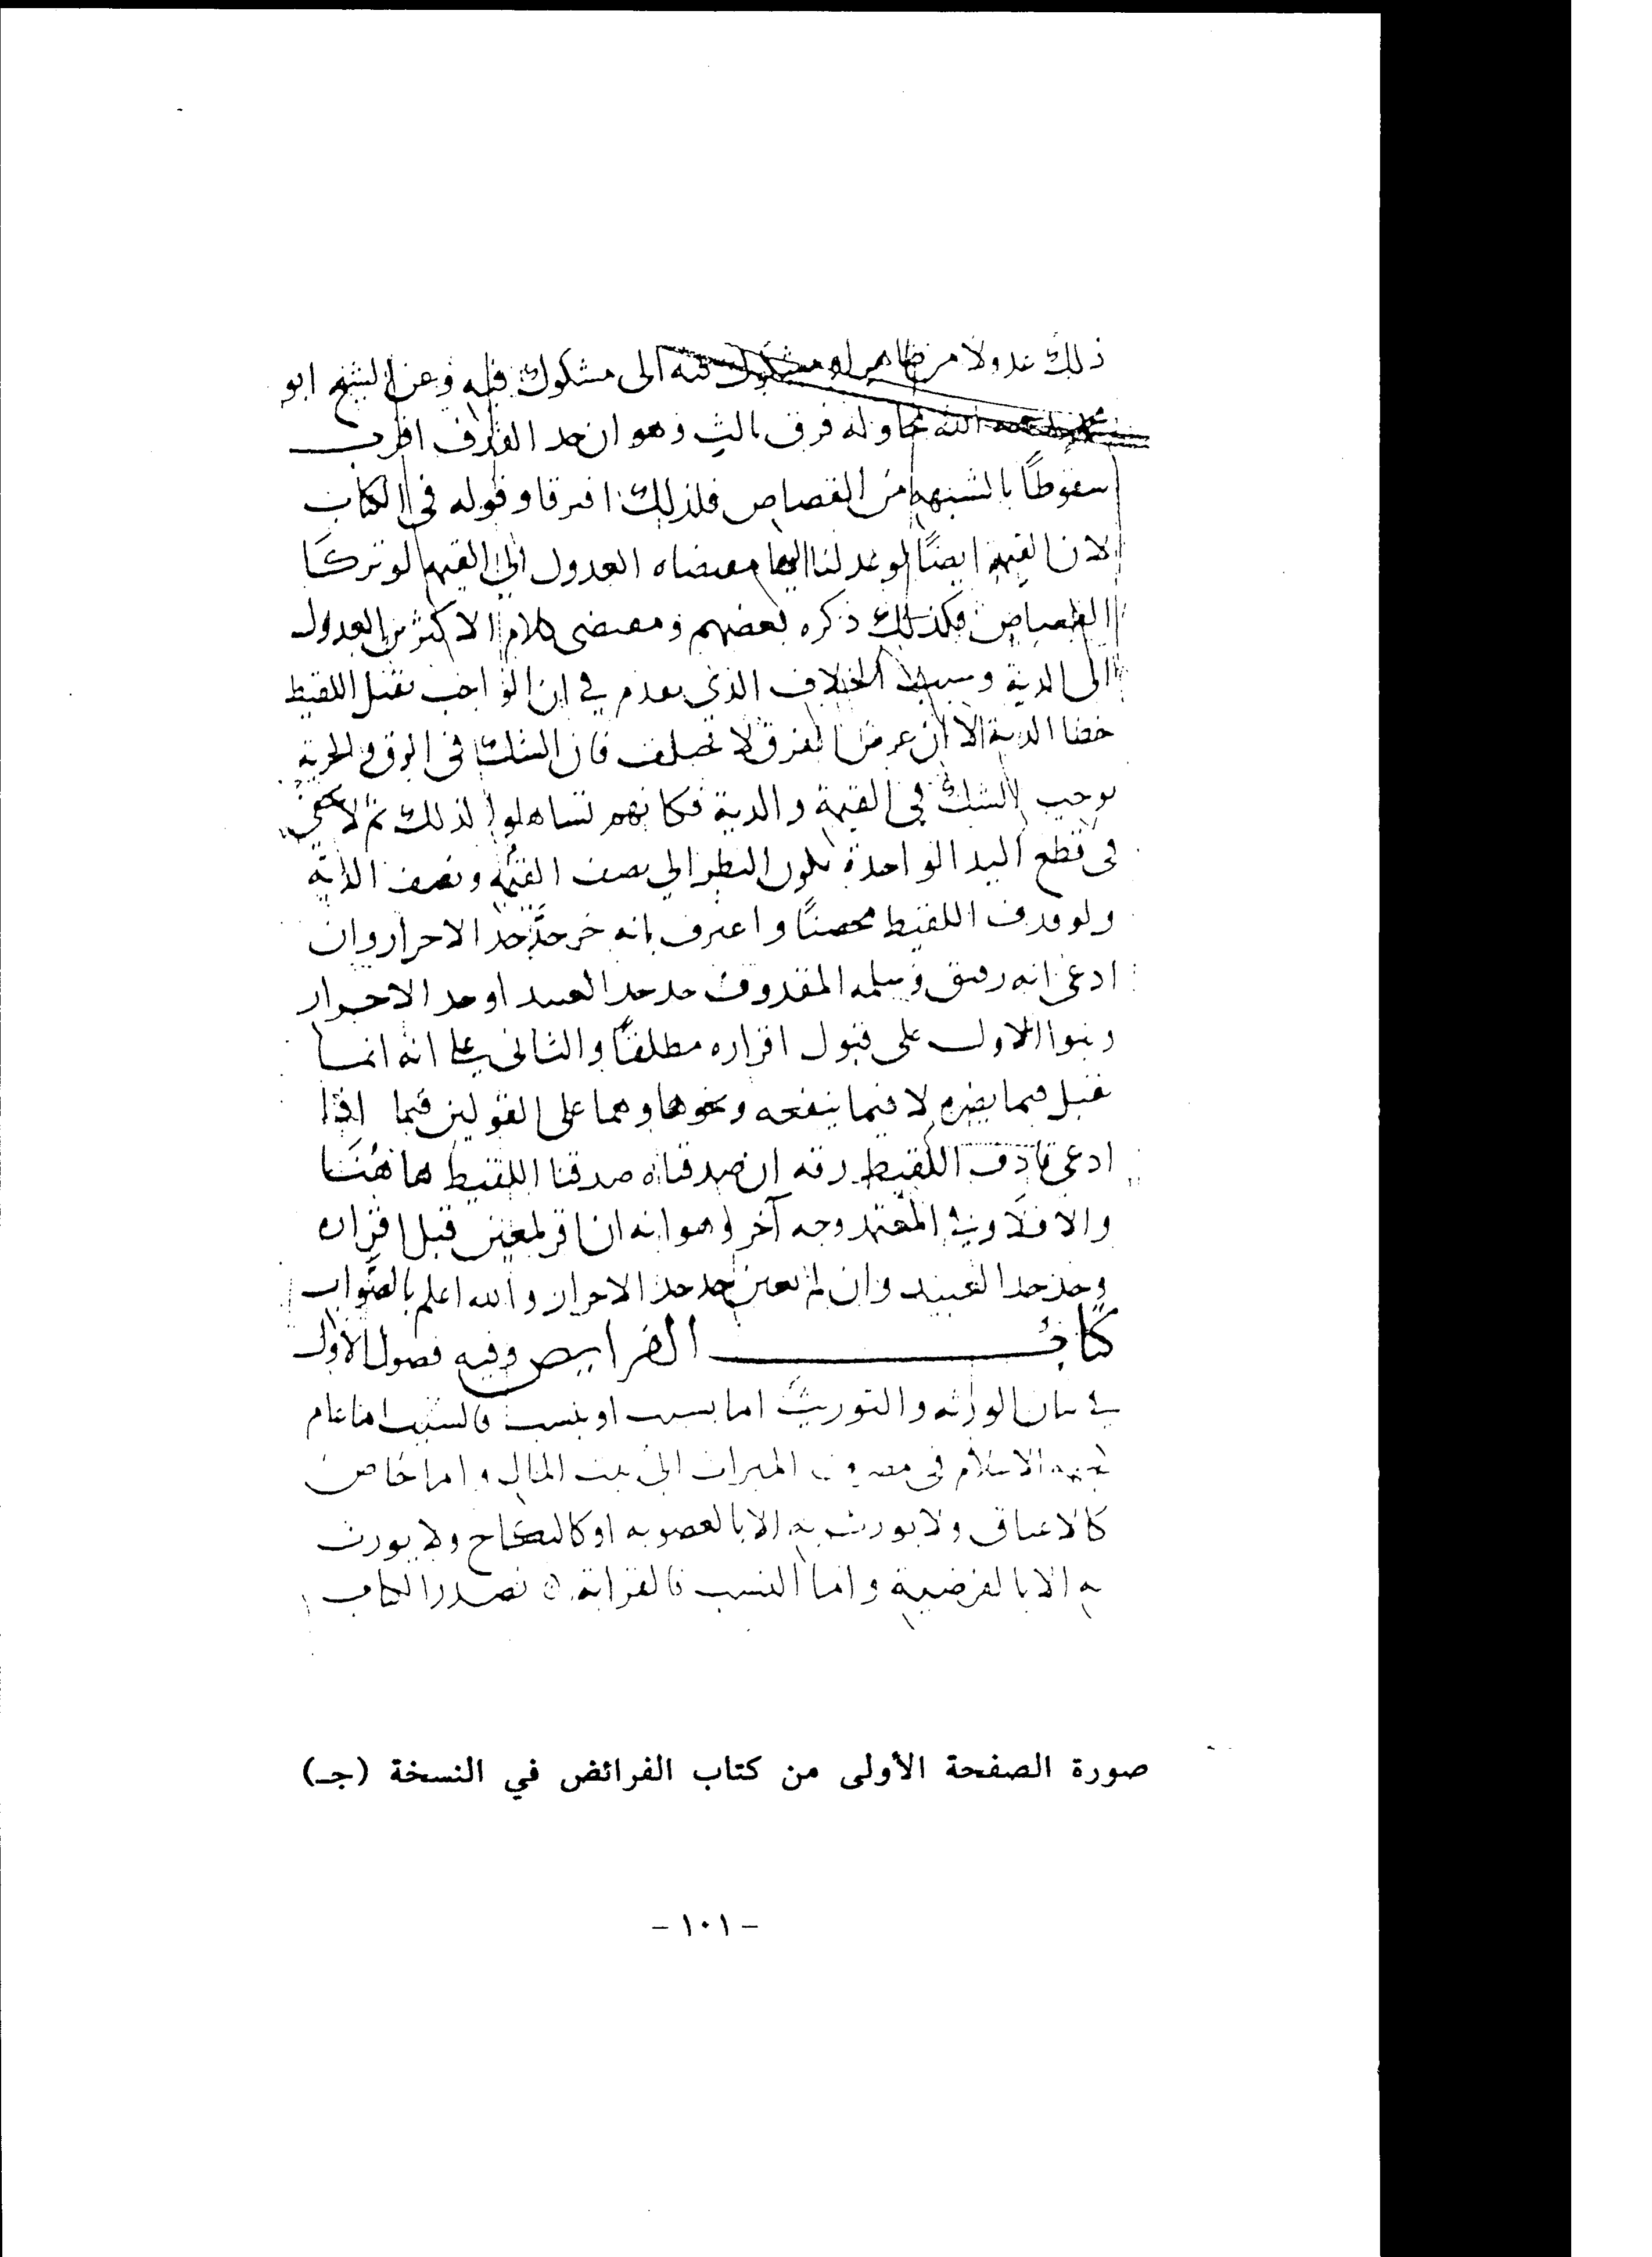 ذلك عدولا من ظاهر او مشكوك فيه الى مشكوك فيه وعن الشيخ ابو
محمد رحمه الله محاولة فرق ثالث وهو ان حد القذف اقرب
سقوطًا بالشبهة من القصاص فلذلك افترقا وقوله في الكتاب
لان القيمة ايضًا لو عدلنا اليها مقتضاه العدول الى القيمة لو تركنا
القصاص فكذلك ذكره بعضهم ومقتضى كلام الاكثرين العدول
الى الدية وسببه الخلاف الذي تقدم في ان الواجب بقتل اللقيط
خطا الدية الا ان غرض الفرق لا يختلف فان الشك في الرق والحرية
يوجب الشك في القيمة والدية فكانهم تساهلوا لذلك ثم لا يخفى
في قطع اليد الواحدة يكون النظر الى نصف القيمة ونصف الدية
ولو قذف اللقيط محصنًا واعترف بانه حر حدّ حد الاحرار وان
ادعى انه رقيق وسلمه المقذوف حد حد العبيد او حد الاحرار
وبنوا الاول على قبول اقراره مطلقًا والثاني على انه انما
يقبل فيما يضره لا فيما ينفعه ونحوها وهما على القولين فيما اذا
ادعى قاذف اللقيط رقه ان صدقناه صدقنا اللقيط هاهنا
والا فلا وفي المعتمد وجه آخر وهو انه ان اقر لمعين قبل اقراره
وحد حد العبيد وان لم يعين حد حد الاحرار والله اعلم بالصواب
كتاب الفرايض وفيه فصول الاول
في بيان الورثة والتوريث اما بسبب او بنسب فالسبب اما عام
كجهة الاسلام في مصروف الميراث الى بيت المال واما خاص
كالاعتاق ولا يورث به الا بالعصوبه او كالنكاح ولا يورث
به الا بالفرضية واما النسب فالقرابة نصدر الكتاب
صورة الصفحة الأولى من كتاب الفرائض في النسخة (جـ)
- ١٠١ -